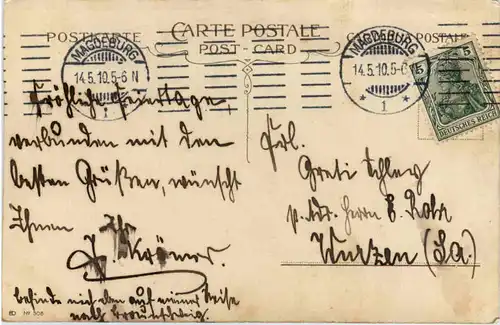 POSTKARTE
CARTE POSTALE
POST-CARD
MAGDEBURG
14.5.10.5-6 N
1
MAGDEBURG
14.5.10.5-6
* 1 *
5
DEUTSCHES REICH
Fröhliche Feiertage,
verbunden mit den
besten Grüßen, wünscht
Ihnen Ihr
Krömer
befinde mich eben auf meiner Reise
nach Braunschweig.
Frl.
Greti
p. Adr. Herrn
Wurzen (Sa.)